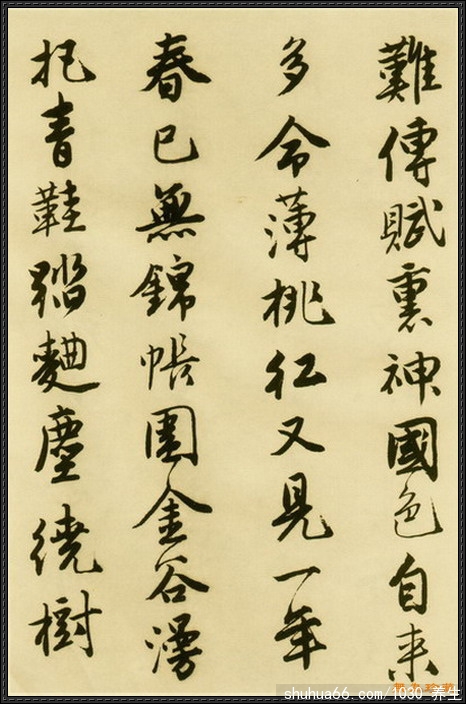 難傳賦裏神國色自来
多命薄桃红又見一年
春已無錦帳圍金谷漫
把青鞋踏麴塵繞樹
shuhua66.com/1030 养生